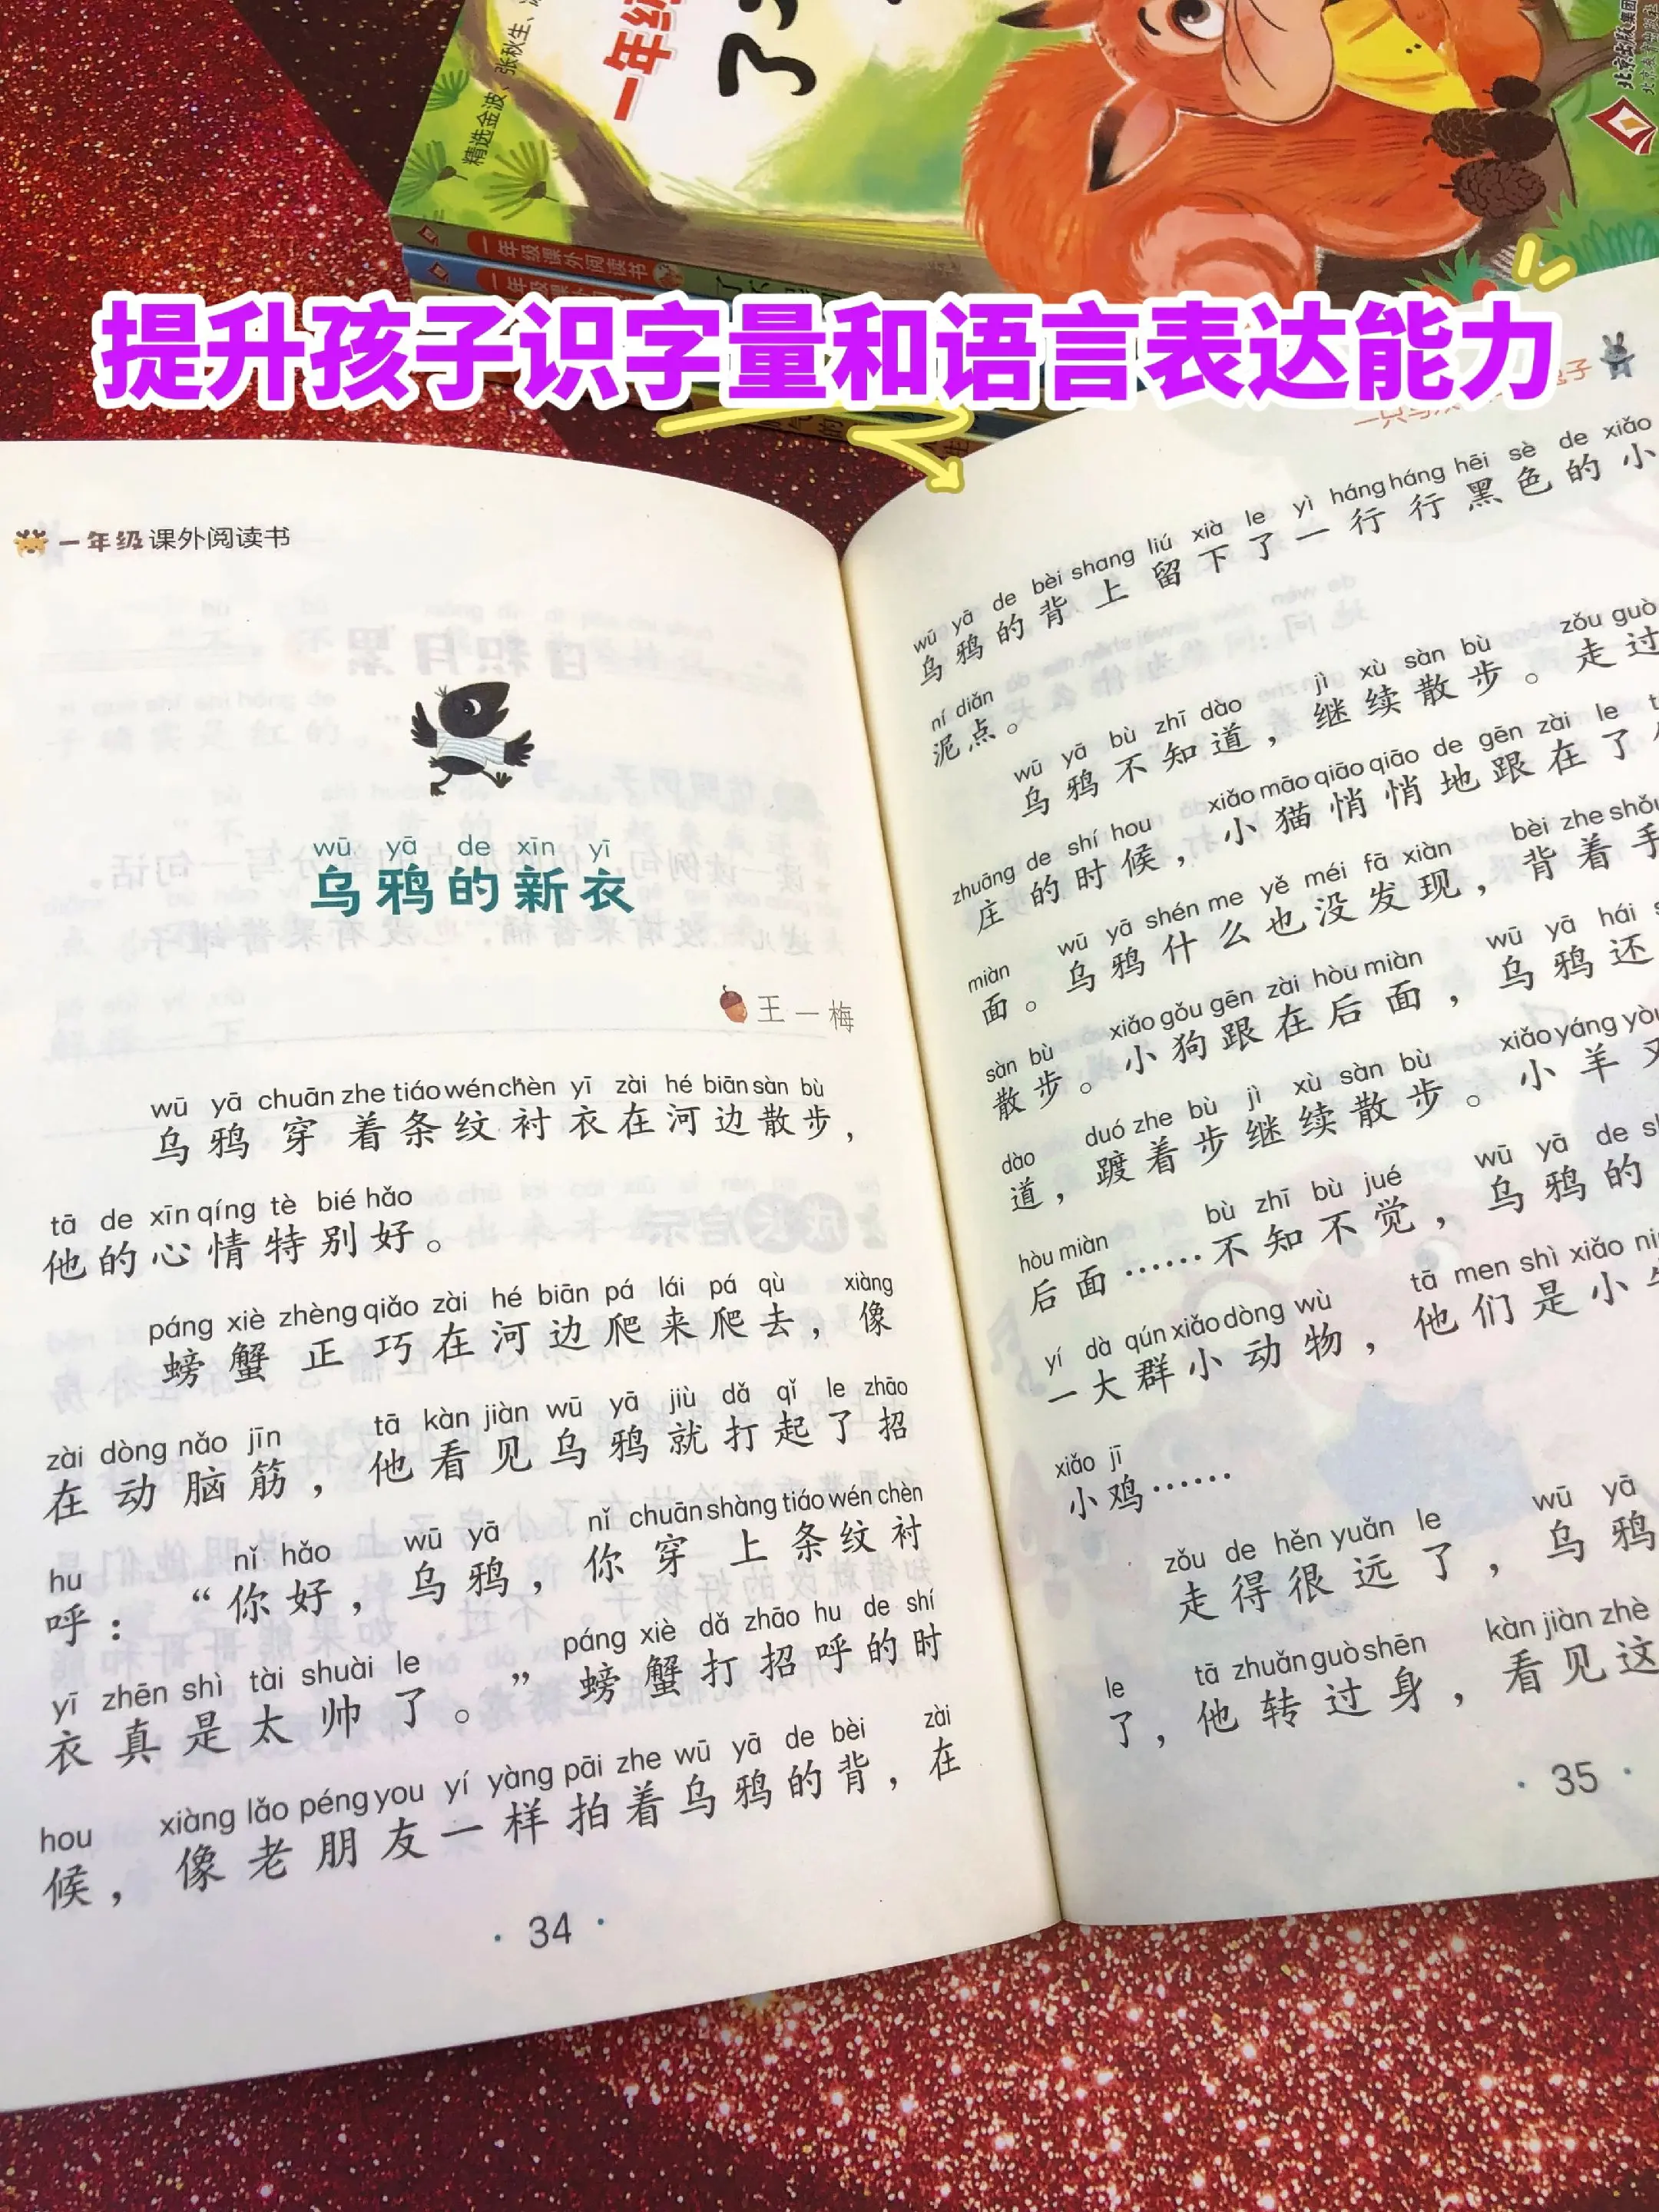 精选金波、张秋生、
一年级
了
一年级课外阅读书
一年级课外
提升孩子识字量和语言表达能力
一年级课外阅读书
wū yā de xīn yī
乌鸦的新衣
王一梅
wū yā chuān zhe tiáo wén chèn yī zài hé biān sàn bù
乌鸦穿着条纹衬衣在河边散步，
tā de xīn qíng tè bié hǎo
他的心情特别好。
páng xiè zhèng qiǎo zài hé biān pá lái pá qù xiàng
螃蟹正巧在河边爬来爬去，像
zài dòng nǎo jīn tā kàn jiàn wū yā jiù dǎ qǐ le zhāo
在动脑筋，他看见乌鸦就打起了招
hu nǐ hǎo wū yā nǐ chuān shàng tiáo wén chèn
呼：“你好，乌鸦，你穿上条纹衬
yī zhēn shì tài shuài le páng xiè dǎ zhāo hu de shí
衣真是太帅了。”螃蟹打招呼的时
hou xiàng lǎo péng you yí yàng pāi zhe wū yā de bèi zài
候，像老朋友一样拍着乌鸦的背，在
34
wū yā de bèi shang liú xià le yì háng háng hēi sè de xiǎo
乌鸦的背上留下了一行行黑色的小
ní diǎn
泥点。
wū yā bù zhī dào jì xù sàn bù zǒu guò
乌鸦不知道，继续散步。走过
zhuāng de shí hou xiǎo māo qiāo qiāo de gēn zài le
庄的时候，小猫悄悄地跟在了
miàn wū yā shén me yě méi fā xiàn bèi zhe shǒu
面。乌鸦什么也没发现，背着手
sàn bù xiǎo gǒu gēn zài hòu miàn wū yā hái
散步。小狗跟在后面，乌鸦还
dào duó zhe bù jì xù sàn bù xiǎo yáng yòu
道，踱着步继续散步。小羊又
hòu miàn bù zhī bù jué wū yā de
后面……不知不觉，乌鸦的
yí dà qún xiǎo dòng wù tā men shì xiǎo
一大群小动物，他们是小
xiǎo jī
小鸡……
zǒu de hěn yuǎn le wū yā
走得很远了，乌鸦
le tā zhuǎn guò shēn kàn jiàn zhè
了，他转过身，看见这
35